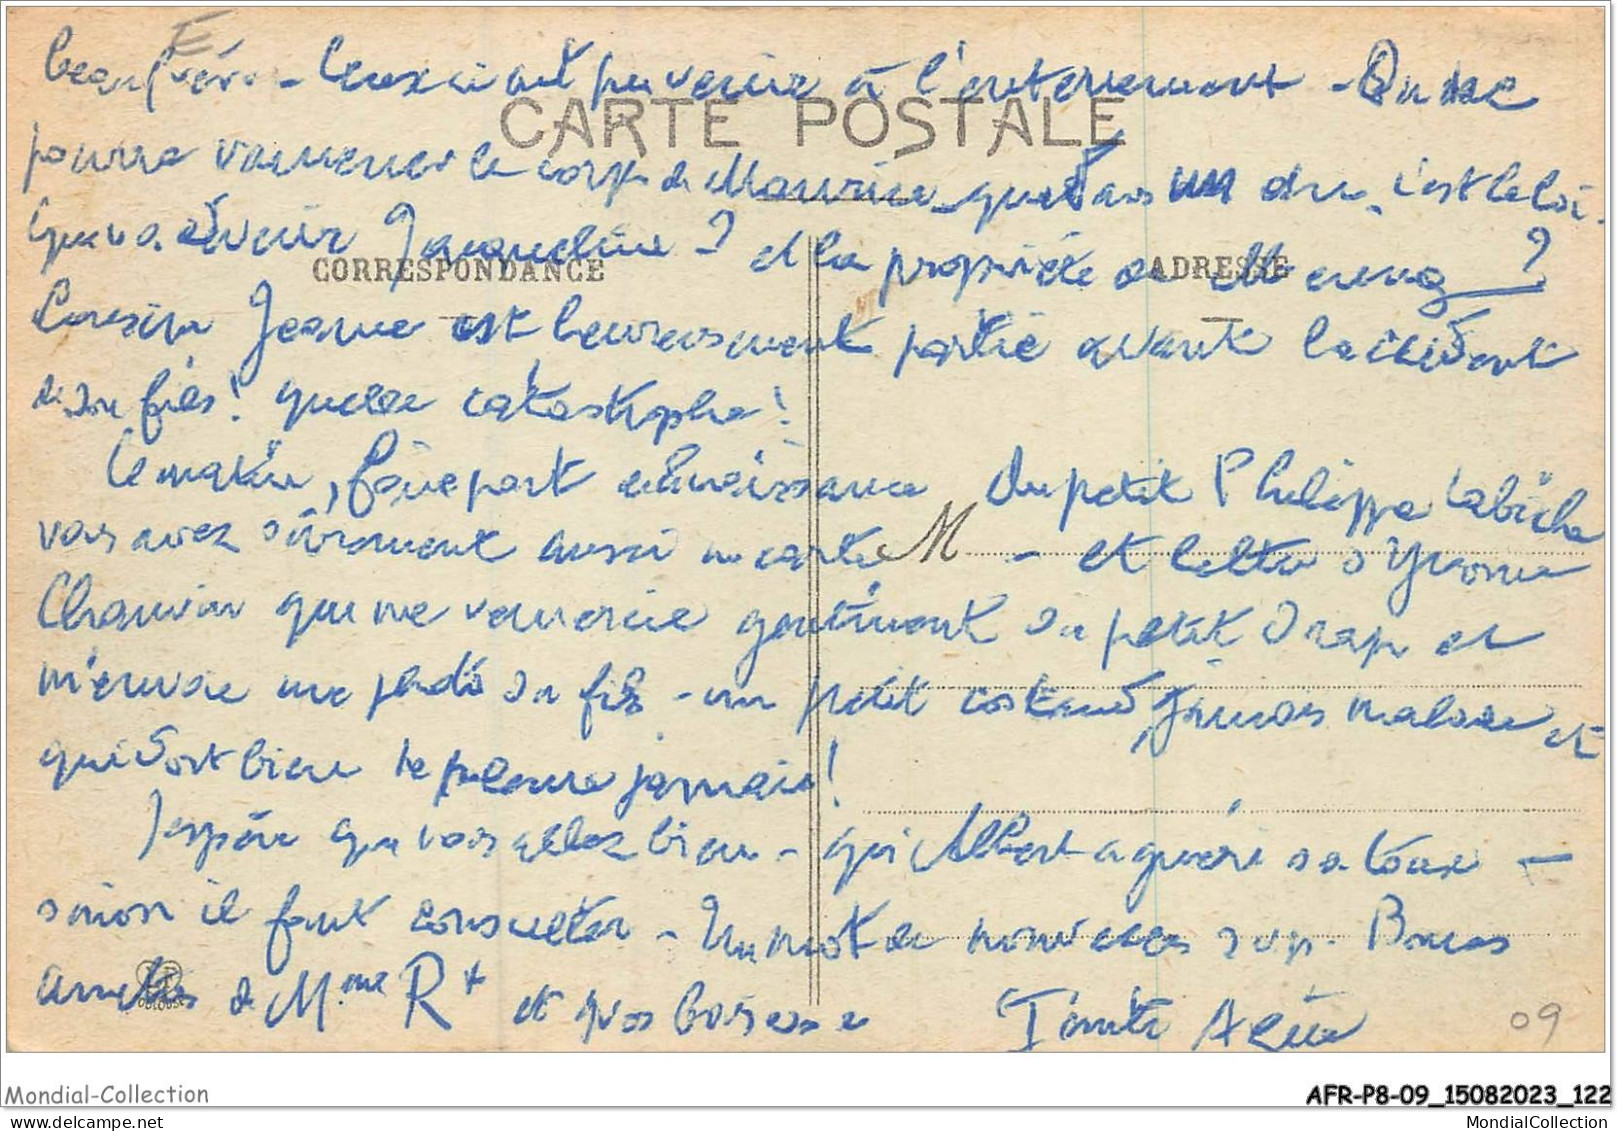 beaufrère - Ceux ci ont pu venir à l'enterrement - On ne
CARTE POSTALE
pourra ramener le corps de Maurice que dans un an, c'est la loi.
que va devenir Jacqueline ? et la propriété ?
CORRESPONDANCE
ADRESSE
Cousine Jeanne est heureusement partie avant l'accident
de son fils ! quelle catastrophe !
Ce matin, faire part de naissance du petit Philippe Labiche
vous avez sûrement aussi une carte - et lettre d'Yvonne
M
Chauvin qui me remercie gentiment du petit drap et
m'envoie une photo du fils - un petit costaud, jamais malade et
qui dort bien ne pleure jamais !
J'espère que vous allez bien - qu'Albert a guéri sa toux -
sinon il faut consulter - Un mot de nouvelles svp. Bonnes
amitiés de Mme R+ et gros baisers
Tante Aline
09
Mondial-Collection
AFR-P8-09_15082023_122
MondialCollection